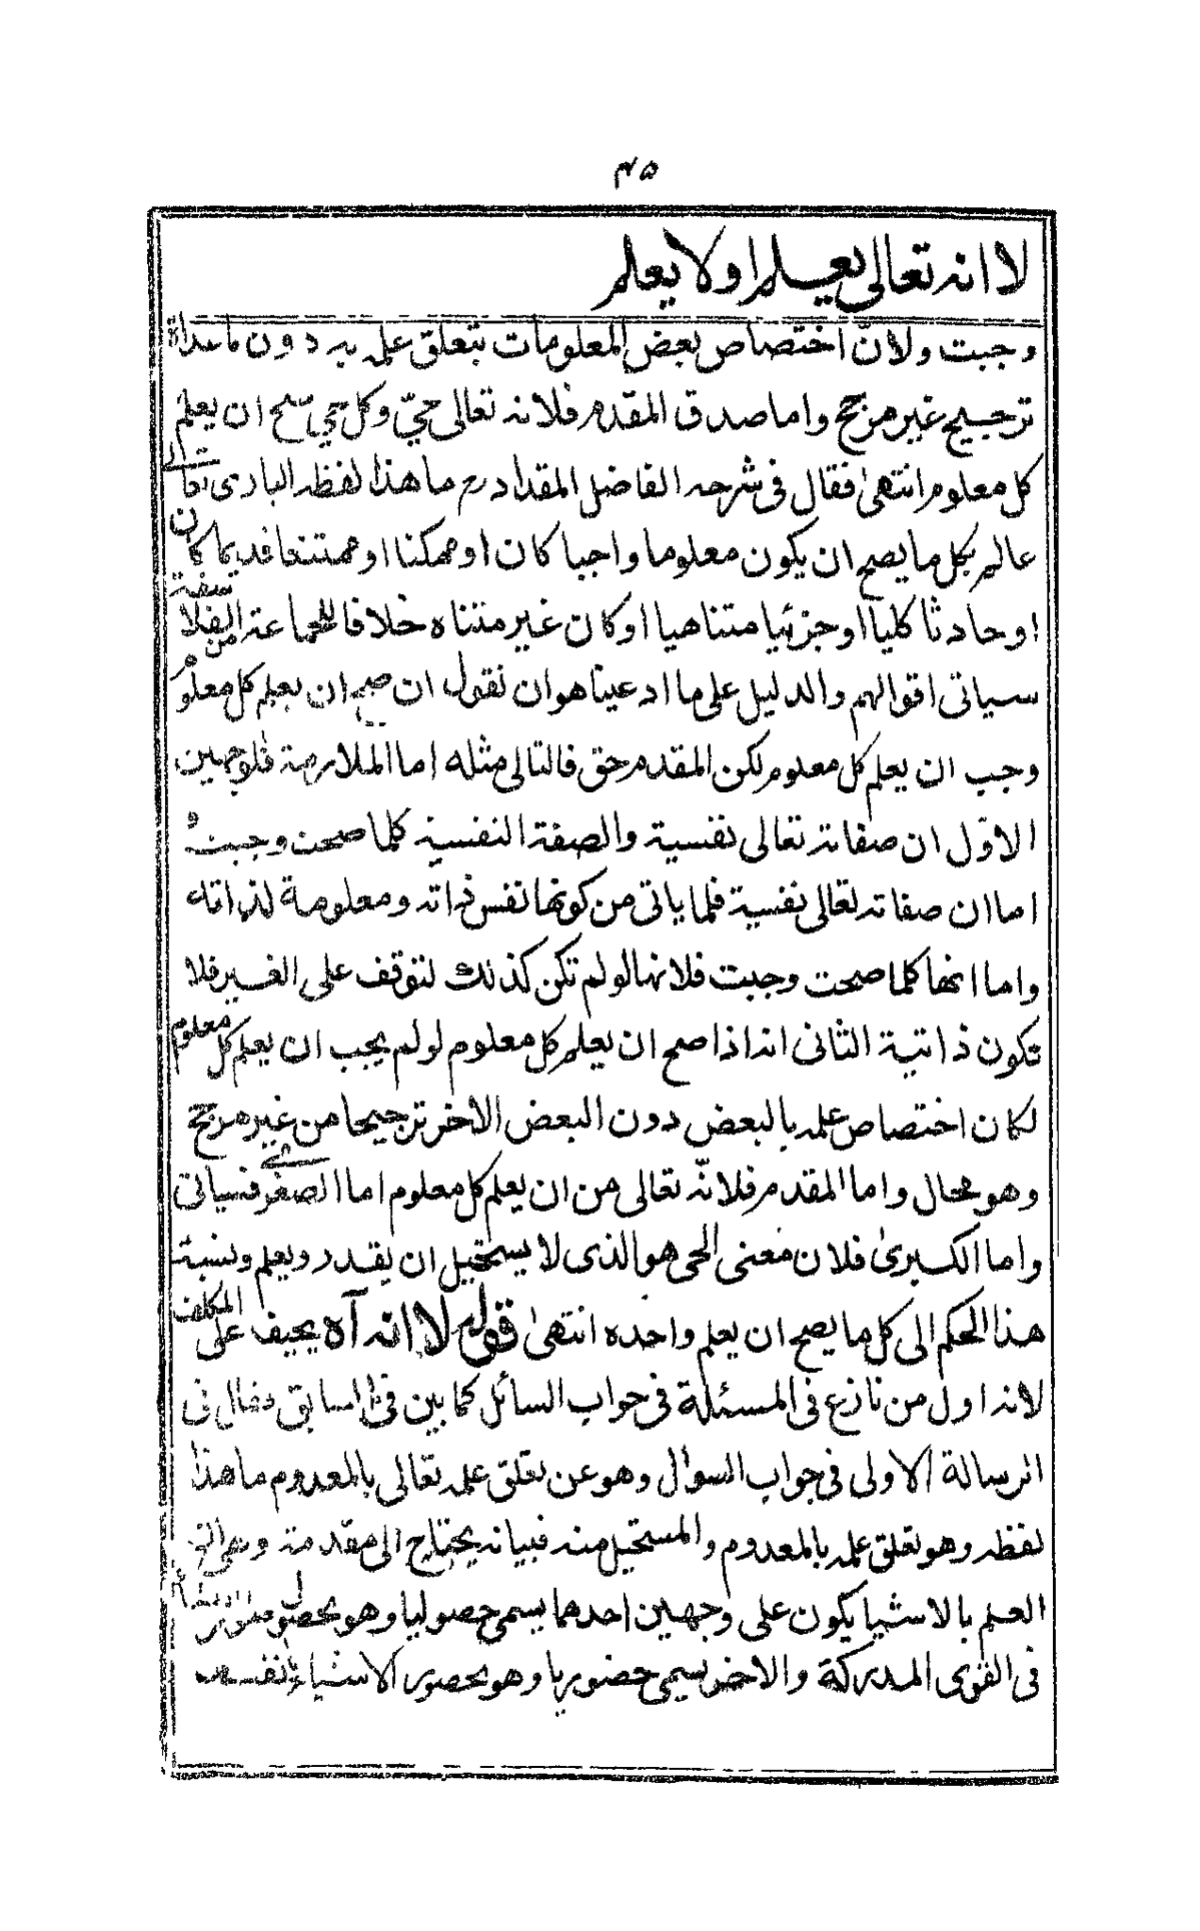 ۴۵
لا انه تعالى يعلم او لا يعلم
وجبت ولانّ اختصاص بعض المعلومات بتعلق علمه به دون ما عداه
ترجيح غير مرجح واما صدق المقدم فلانه تعالى حيّ وكل حي صح ان يعلم
كل معلوم انتهى فقال فى شرحه الفاضل المقداد رح ما هذا لفظه البارى تعالى
عالم بكل ما يصح ان يكون معلوما واجبا كان او ممكنا او ممتنعا قديما كان
او حادثا كليا او جزئيا متناهيا او كان غير متناه خلافا لجماعة من الفلاسفة
سياتى اقوالهم والدليل على ما ادعيناه هو ان نقول ان صح ان يعلم كل معلوم
وجب ان يعلم كل معلوم لكن المقدم حق فالتالى مثله اما الملازمة فلوجهين
الاوّل ان صفاته تعالى نفسية والصفة النفسية كلما صحت وجبت و
اما ان صفاته تعالى نفسية فلما ياتى من كونها نفس ذاته ومعلومة لذاته
واما انها كلما صحت وجبت فلانها لو لم تكن كذلك لتوقف على الغير فلا
تكون ذاتية الثانى انه اذا صح ان يعلم كل معلوم لو لم يجب ان يعلم كل معلوم
لكان اختصاص علمه بالبعض دون البعض الاخر ترجيحا من غير مرجح
وهو محال واما المقدم فلانّه تعالى من ان يعلم كل معلوم اما الصغرى فسياتى
واما الكبرىٰ فلان معنى الحى هو الذى لا يستحيل ان يقدر ويعلم ونسبة
هذا الحكم الى كل ما يصح ان يعلم واحده انتهىٰ قوله لا انه آه يجيف على المكلف
لانه اول من نازع فى المسئلة فى جواب السائل كما بين فى السابق فقال فى
الرسالة الاولى فى جواب السوال وهو عن تعلق علمه تعالى بالمعدوم ما هذا
لفظه وهو تعلق علمه بالمعدوم والمستحيل منه فبيانه يحتاج الى مقدمة وهى ان
العلم بالاشيا يكون على وجهين احدهما يسمى حصوليا وهو بحصول صور الاشيا
فى القوى المدركة والاخر يسمى حضوريا وهو بحضور الاشياء